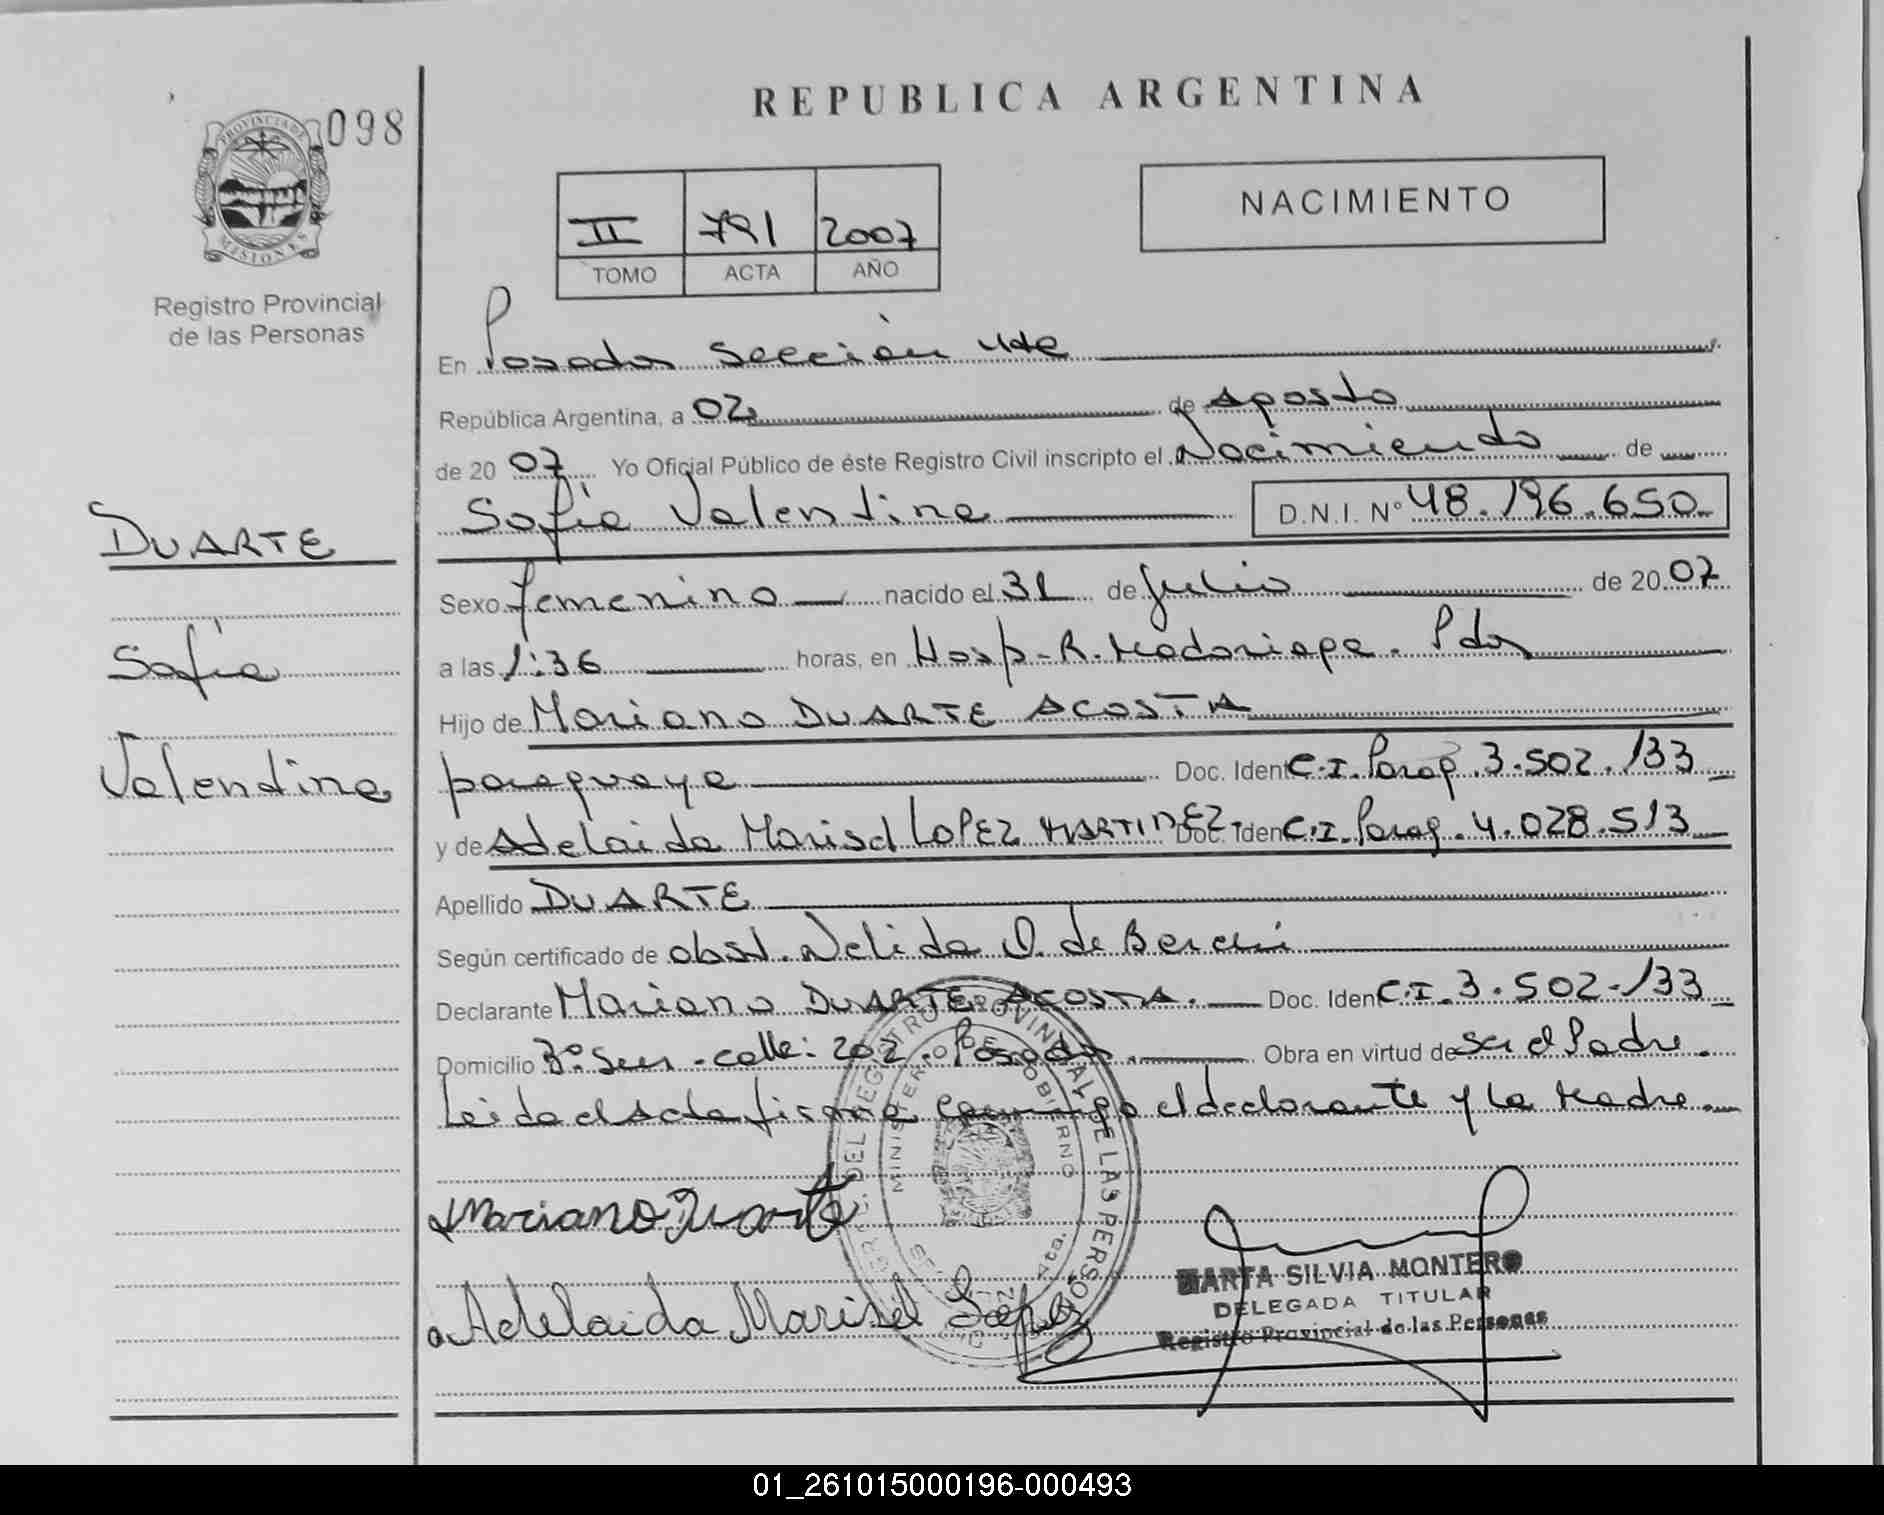 REPUBLICA ARGENTINA
098
PROVINCIA DE
MISIONES
Registro Provincial
de las Personas
II 791 2007
TOMO ACTA AÑO
NACIMIENTO
En Posadas Sección
República Argentina, a 02 de Agosto
de 20 07 Yo Oficial Público de éste Registro Civil inscripto el Nacimiento de
Sofia Valentina D.N.I. Nº 48.196.650
DUARTE
Sofia
Valentina
Sexo femenino nacido el 31 de Julio de 20 07
a las 1:36 horas, en Hosp. R. Madariaga. Pdas
Hijo de Mariano DUARTE ACOSTA
paraguaya Doc. Ident C.I. Parag. 3.502.133
y de Adelaida Marisel LOPEZ MARTINEZ. Doc. Iden C.I. Parag. 4.028.513
Apellido DUARTE
Según certificado de obst. Nelida O. de
Declarante Mariano DUARTE ACOSTA. Doc. Iden C.I. 3.502.133
Domicilio calle: 202. Posadas. Obra en virtud de ser el Padre.
Leida el Acta firma conmigo el declarante y la Madre.
Mariano Duarte
Adelaida Marisel López
REGISTRO PROVINCIAL DE LAS PERSONAS
MINISTERIO DE GOBIERNO
MARTA SILVIA MONTERO
DELEGADA TITULAR
Registro Provincial de las Personas
01_261015000196-000493